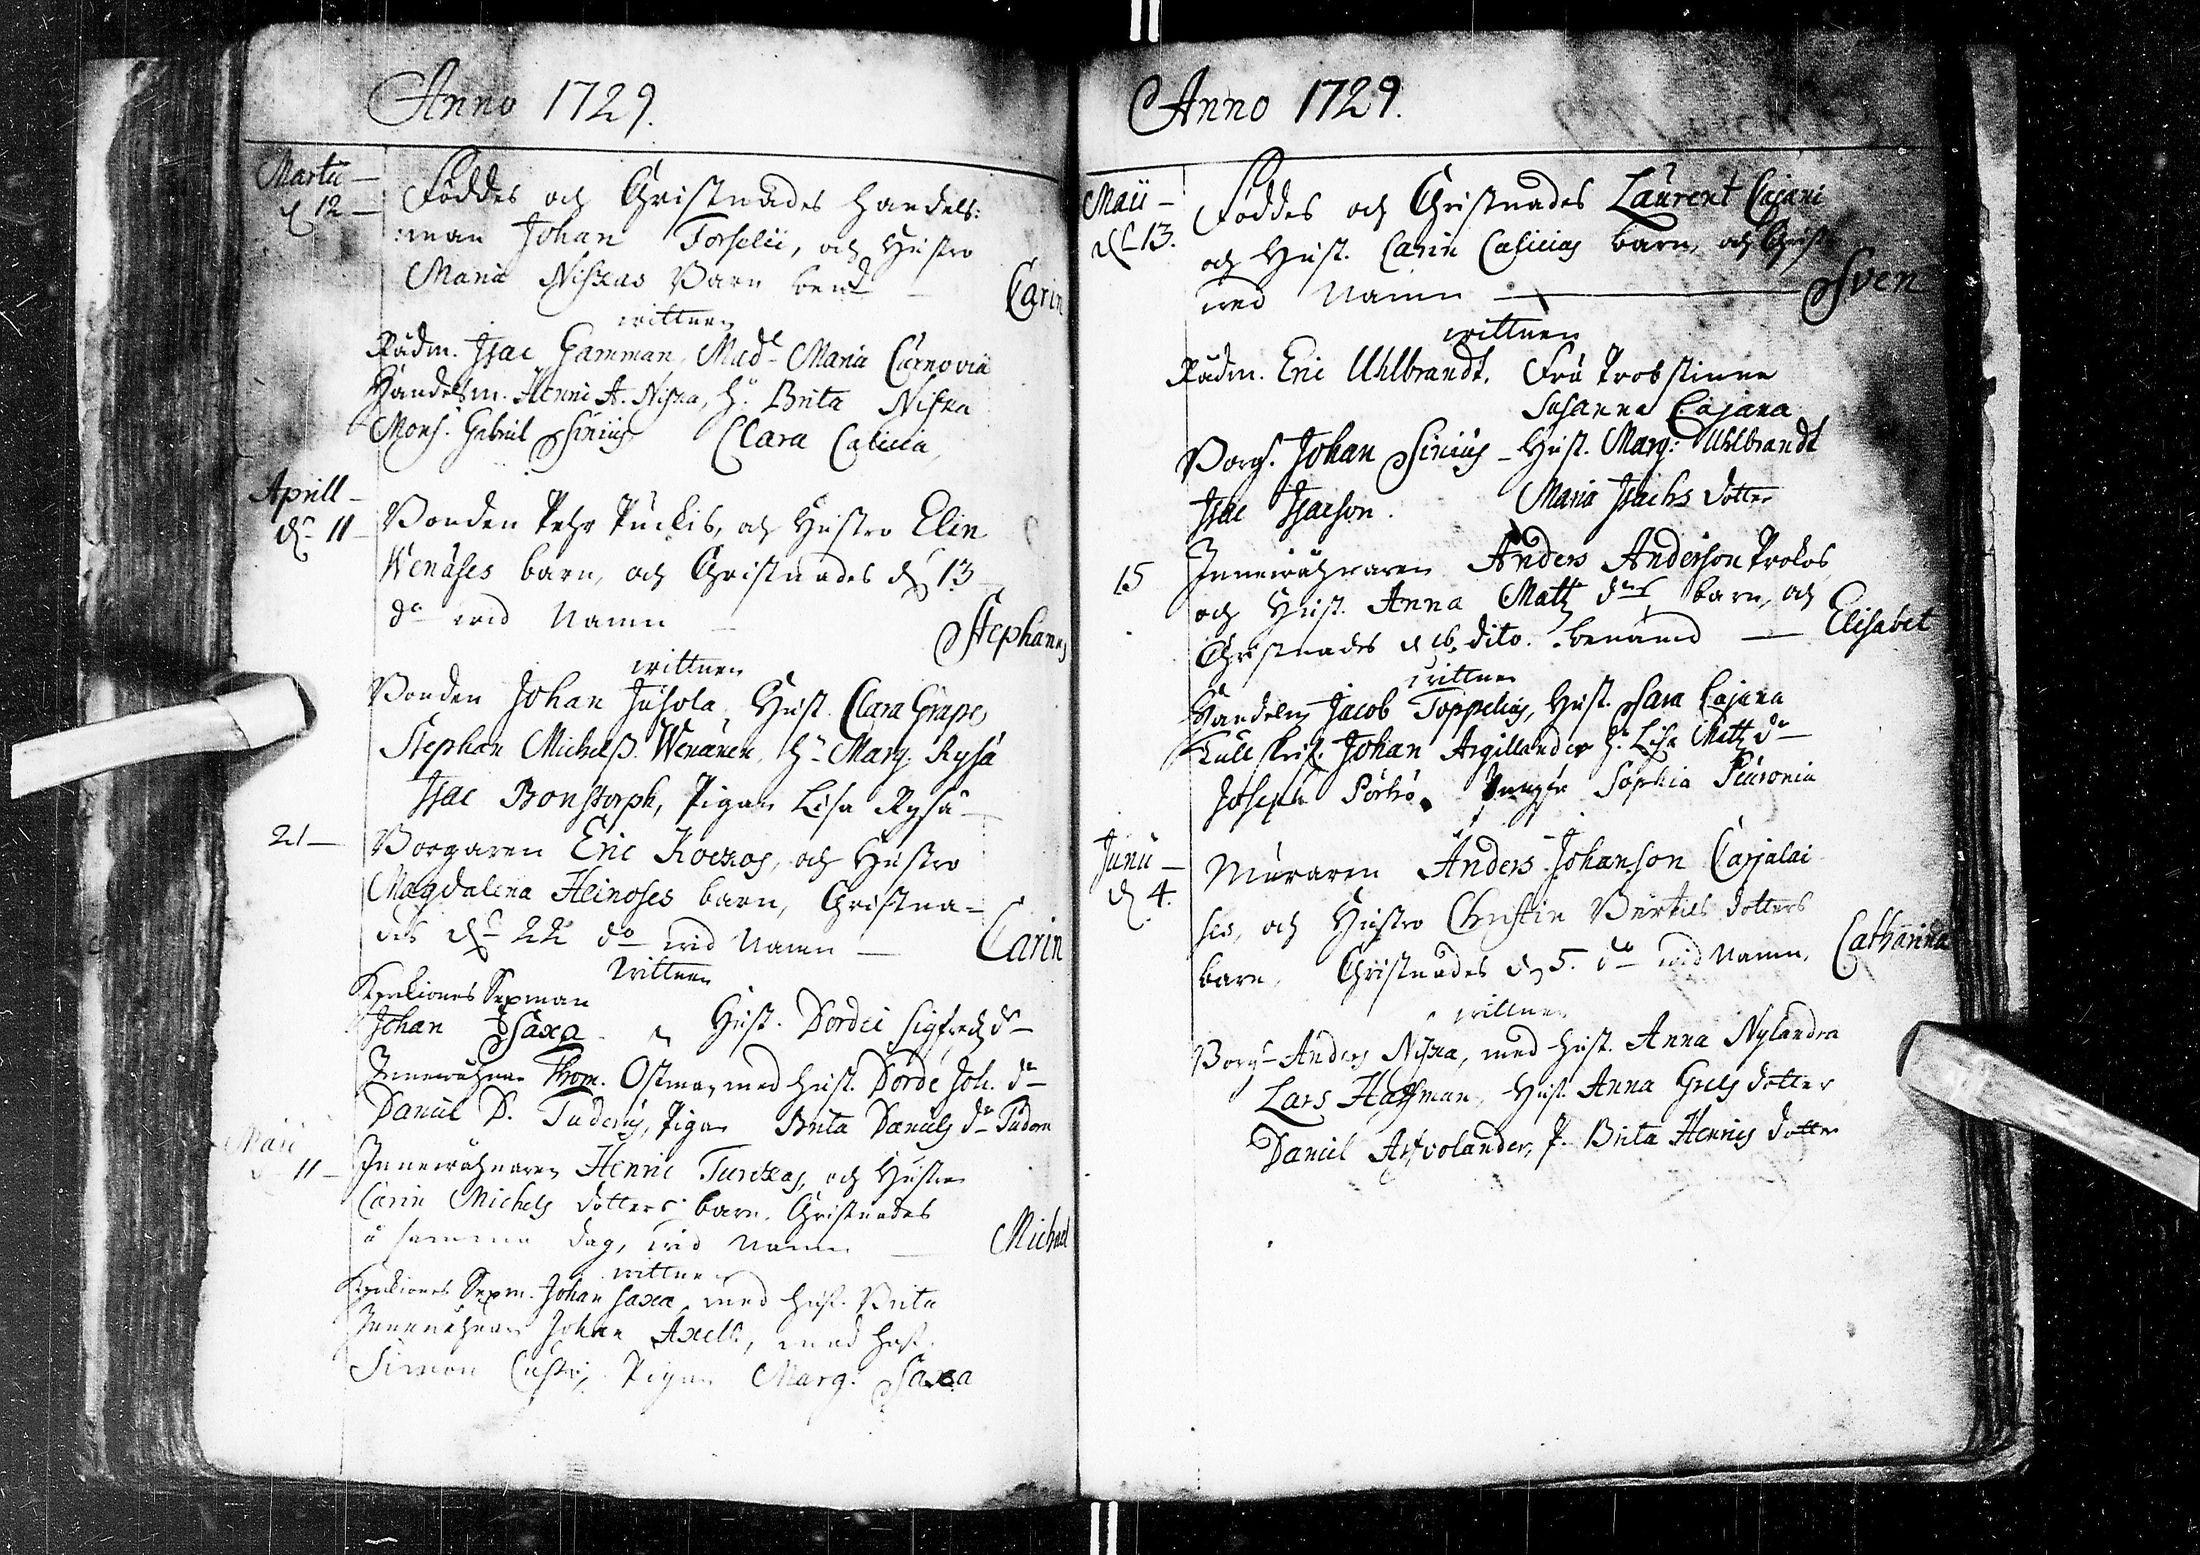 Anno 1729.
Martii –
d 12 –
Föddes och Christnades Handels:
:man Johan Torselii, och Hustro
Maria Niskas Barn ben:d – Carin
wittnen
Rådm. Isac Gamman, Mad:e Maria Curnovia
Handelsm. Henric A. Niska, H:u Brita Niska
Mons:r Gabriel Sirnius Clara Calicia
Aprill –
d. 11 –
Bonden Pehr Puckis, och Hustro Elin
Wenäses barn, och Christnades d 13
d:o wid Namn – Stephanus
wittnen
Bonden Johan Juhola, Hust. Clara Grape,
Stephan Michelss. Wenänen, H:u Marg. Rysä
Isac Bonstorph, Pigan Lisa Rysä
21 –
Borgaren Eric Kockos, och Hustro
Magdalena Heinoses barn, Christna-
des d. 22 d:o wid Namn – Carin
Wittnen
Sexman
Johan Saxa Hust. Dordei Sigfredz d:r
Innewåhnar Thom. Ostman, med Hust. Dorde Joh. d:r
Daniel D. Tuderus, Pigan Brita Daniels d:r
Maii
11 –
Innewåhnaren Henric Turckas, och Hustro
Carin Michels dotters barn. Christnades
å samma dag, wid Namn – Michael
wittnen
Sexm. Johan Saxa, med Hust. Brita
Innewåhnar Johan Axell, med Hust.
Simon Pigan Marg. Saxa
Anno 1729.
Maii –
d. 13.
Föddes och Christnades Laurent Cajani
och Hust. Carin Calicias barn, och
wid Namn – Sven
wittnen
Rådm. Eric Uhlbrandt. Fru Probstinnan
Susanna Cajana
Borg. Johan Sirnius – Hust. Marg: Uhlbrandt
Isac Isacson. Maria Isachs dotter
15
Innewåhnaren Anders Anderson Prokos
och Hust. Anna Matz d:rs barn, och
Christnades d 16 dito. benämd – Elisabet
wittnen
Handelm Jacob Toppelius, Hust. Sara Cajana
Tull skrif. Johan Argillander H:u Lisa Matz d:r
Joseph Pörhö, Jungfr Sophia
Junii –
d 4.
Muraren Anders Johanson Carjalai
ses, och Hustro Christin Bertils dotters
barn, Christnades d. 5. d:o wid Namn, Catharina
wittnen
Borg:r Anders Niska, med Hust. Anna Nylandra
Lars Haffman, Hust. Anna Grels dotter
Daniel Arfvolander, P. Brita Henrics dotter